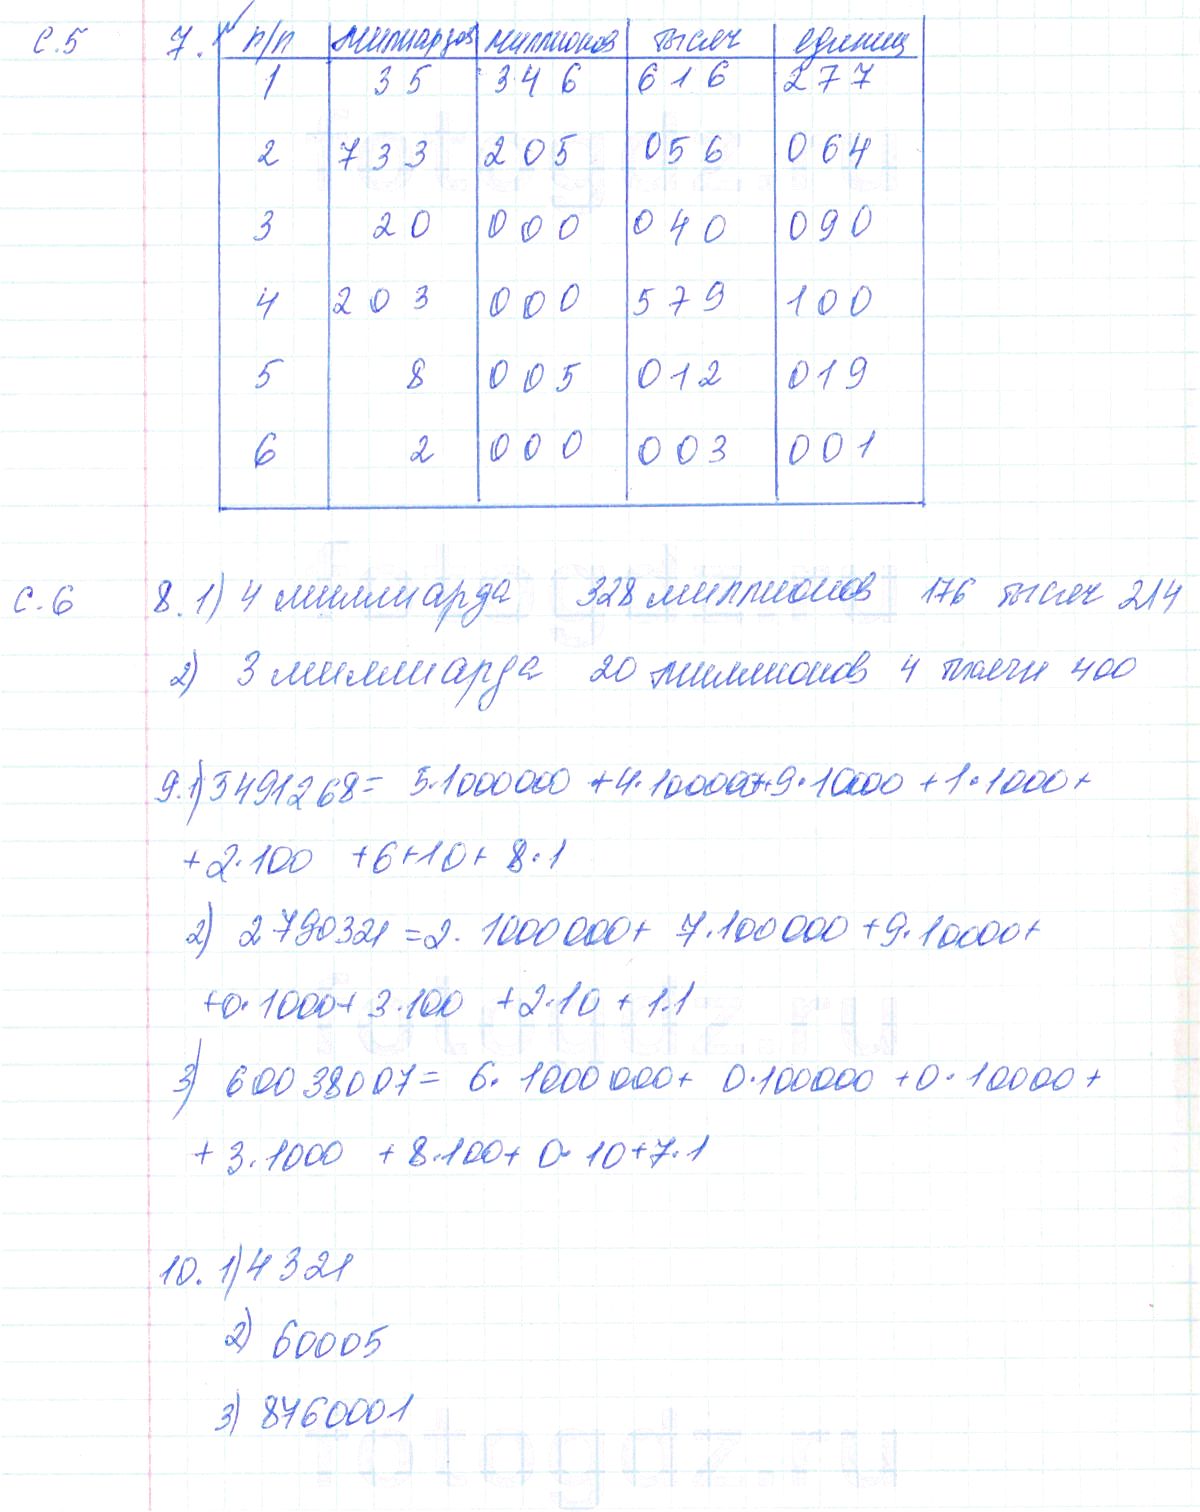 с.5 7. п/п миллиардов миллионов тысяч единиц
1 35 346 616 277
2 733 205 056 064
3 20 000 040 090
4 203 000 579 100
5 8 005 012 019
6 2 000 003 001
с.6 8. 1) 4 миллиарда 328 миллионов 176 тысяч 214
2) 3 миллиарда 20 миллионов 4 тысячи 400
9. 1) 5491268 = 5·1000000 + 4·100000+9·10000 + 1·1000+
+ 2·100 + 6+10 + 8·1
2) 2790321 = 2·1000000+ 7·100000 + 9·10000+
+0·1000+ 3·100 + 2·10 + 1·1
3) 60038007 = 6·1000000+ 0·100000 + 0·10000 +
+ 3·1000 + 8·100+ 0·10 + 7·1
10. 1) 4321
2) 60005
3) 8760001